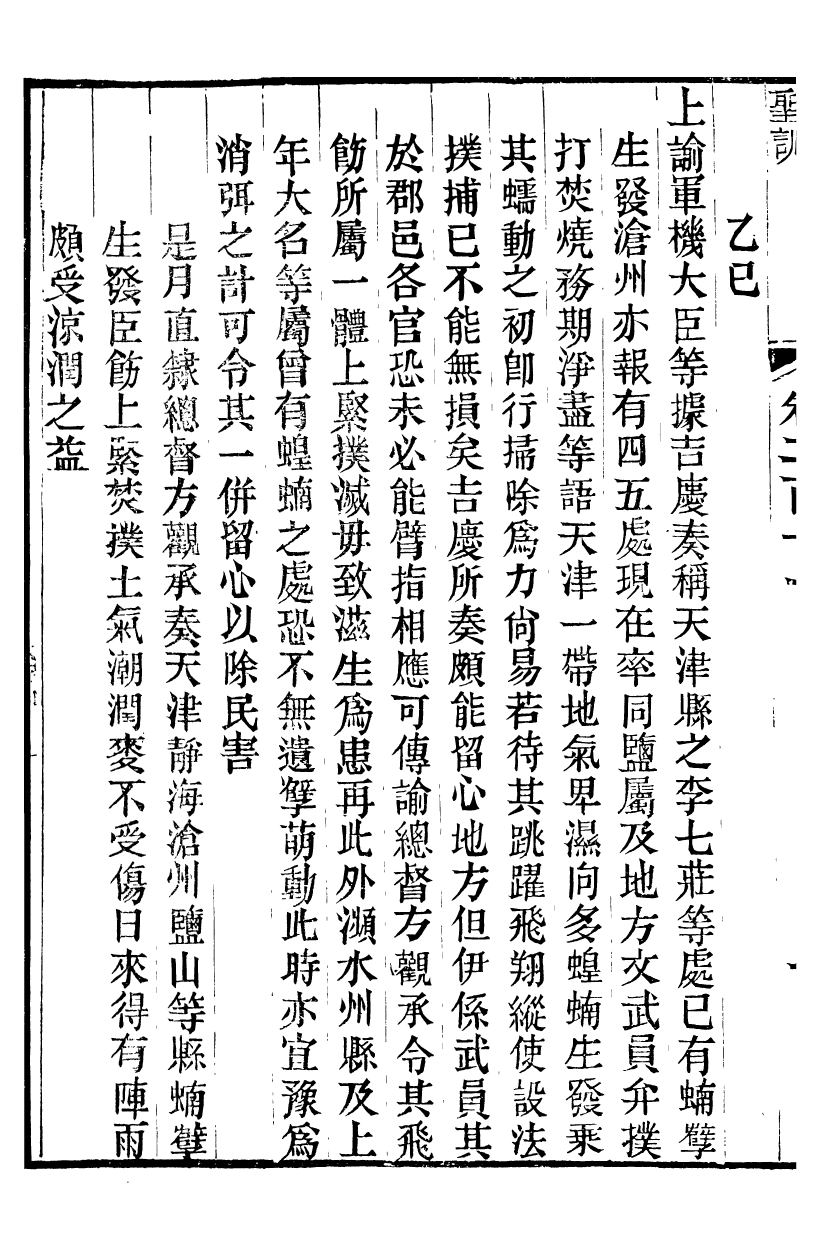 聖訓
乙巳
上諭軍機大臣等據吉慶奏稱天津縣之李七莊等處已有蝻孽
生發滄州亦報有四五處現在率同鹽屬及地方文武員弁撲
打焚燒務期淨盡等語天津一帶地氣卑濕向多蝗蝻生發乘
其蠕動之初卽行掃除爲力尙易若待其跳躍飛翔縱使設法
撲捕已不能無損矣吉慶所奏頗能留心地方但伊係武員其
於郡邑各官恐未必能臂指相應可傳諭總督方觀承令其飛
飭所屬一體上緊撲滅毋致滋生爲患再此外瀕水州縣及上
年大名等屬曾有蝗蝻之處恐不無遺孽萌動此時亦宜豫爲
消弭之計可令其一併留心以除民害
是月直隸總督方觀承奏天津靜海滄州鹽山等縣蝻孽
生發臣飭上緊焚撲土氣潮潤麥不受傷日來得有陣雨
頗受涼潤之益